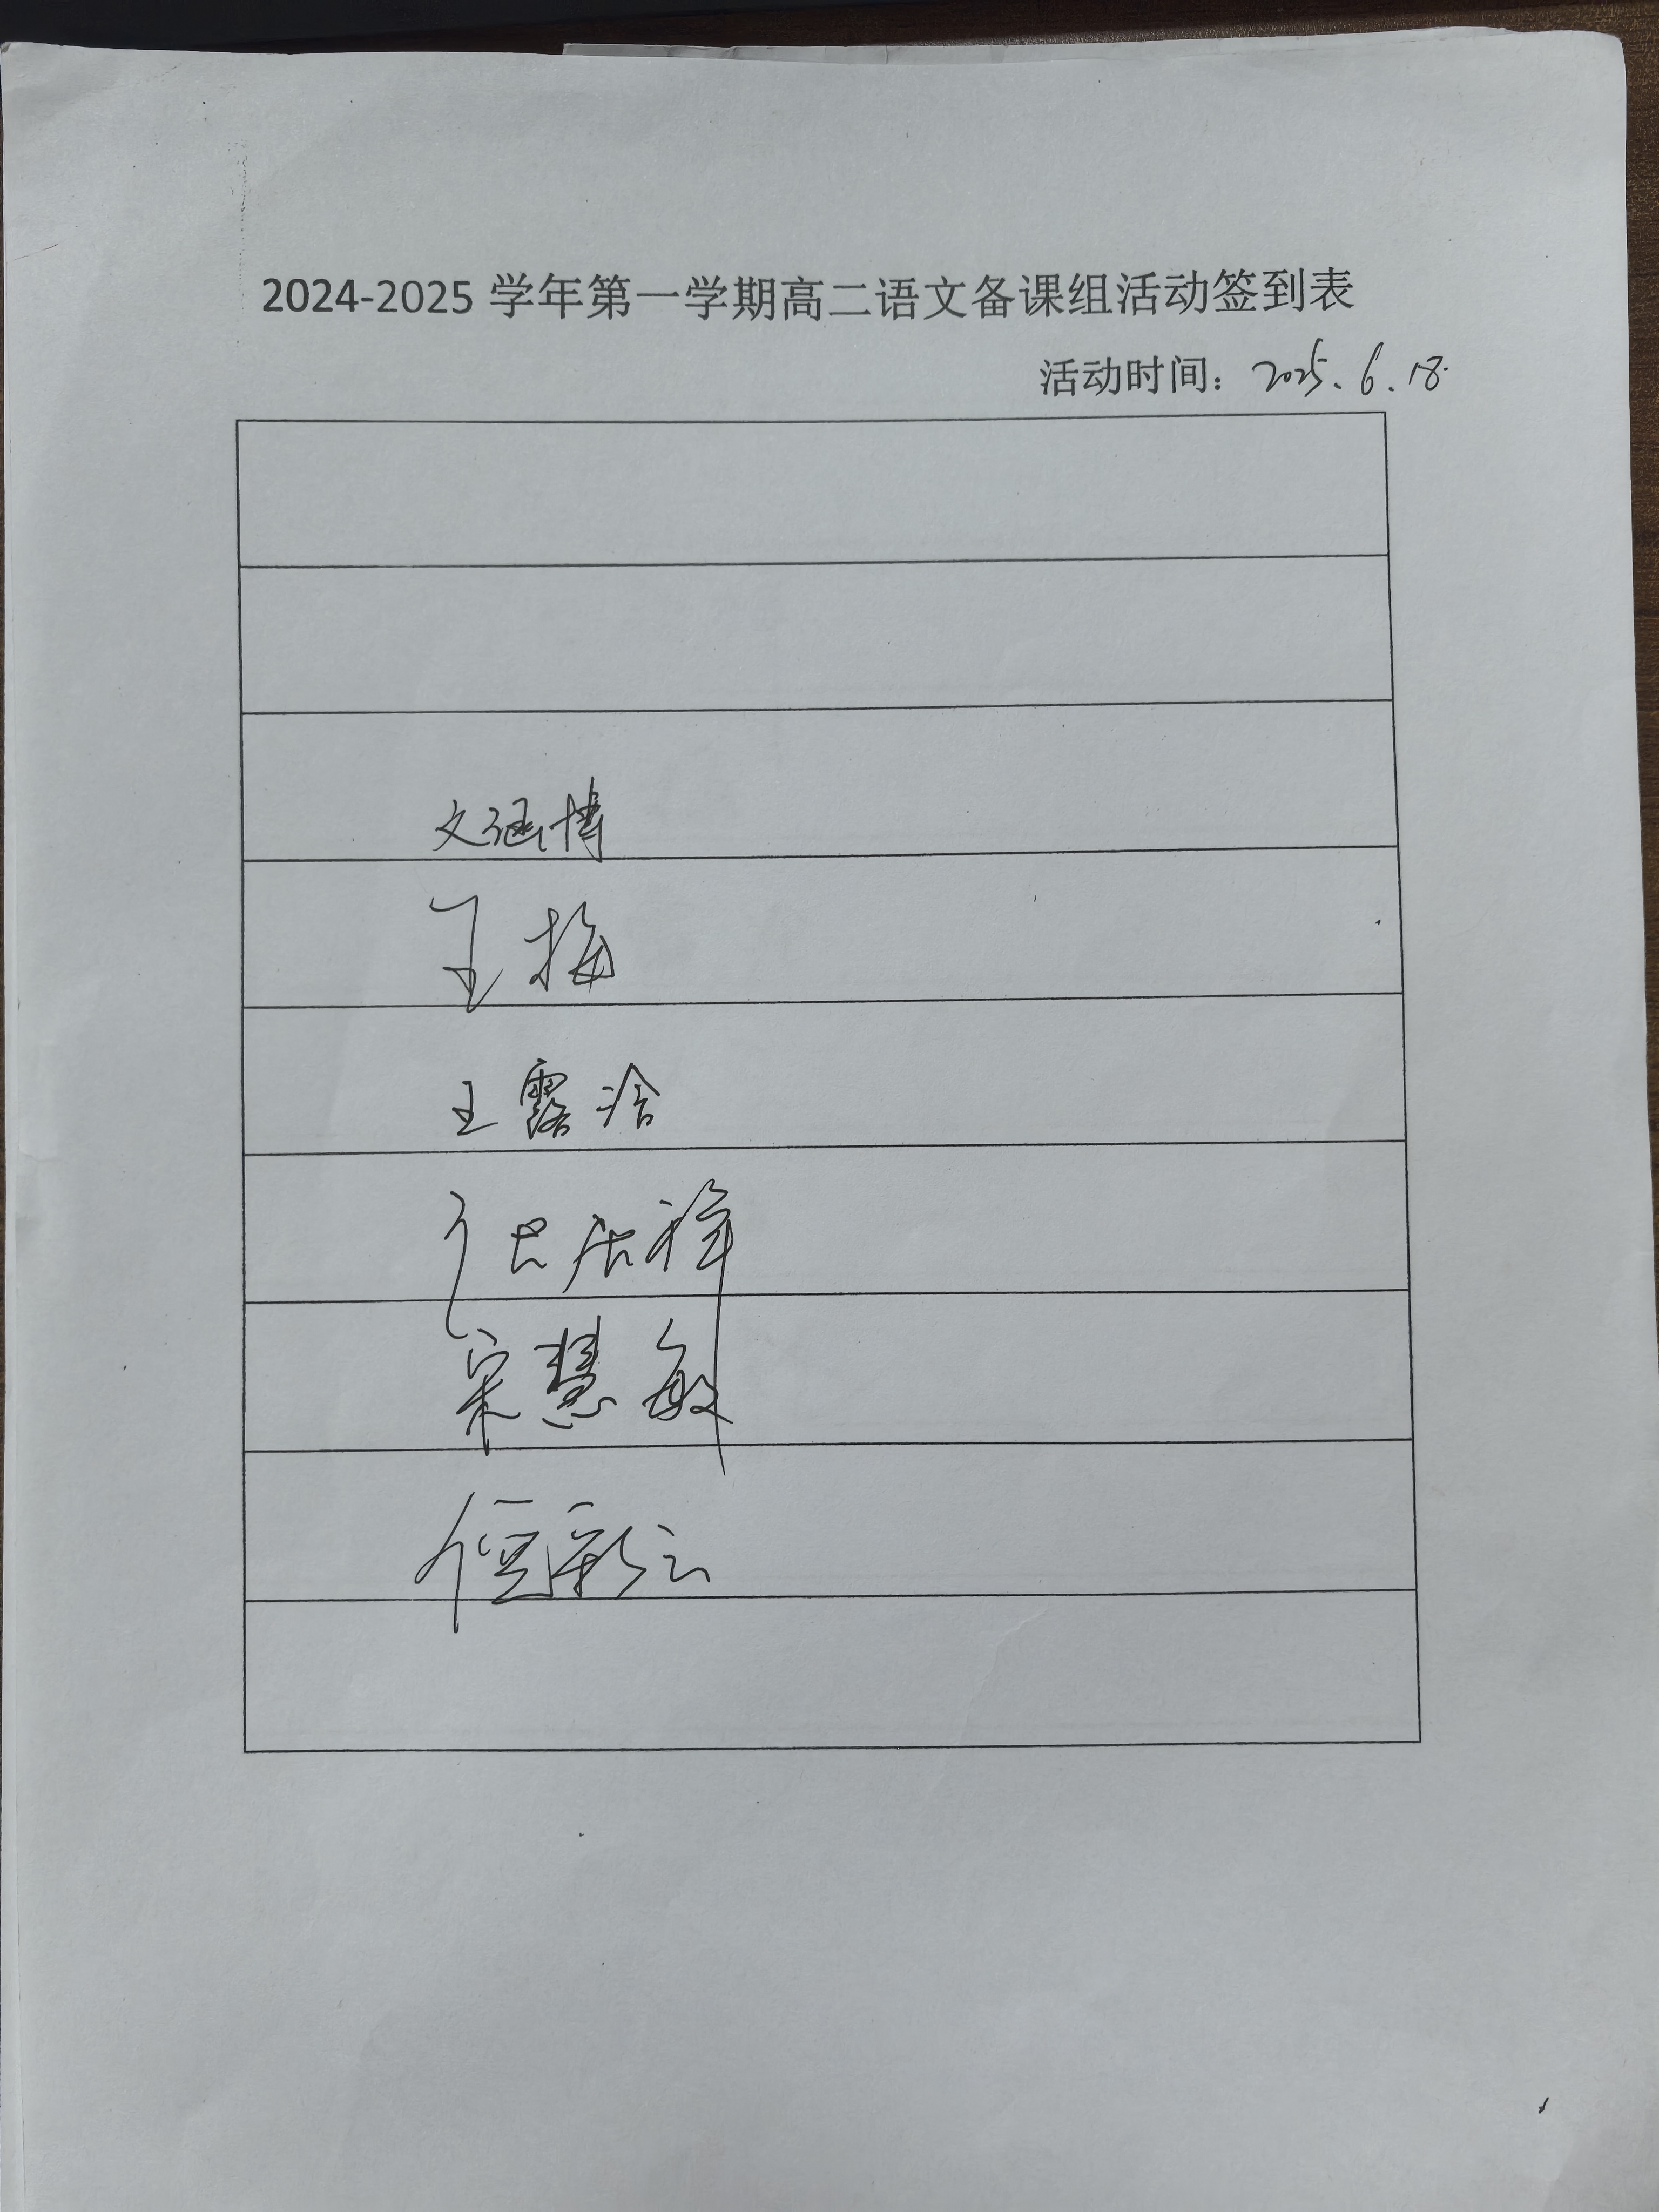 2024-2025 学年第一学期高二语文备课组活动签到表
活动时间：2025.6.18
文涵博
王梅
王露涵
宋慧敏
彩云